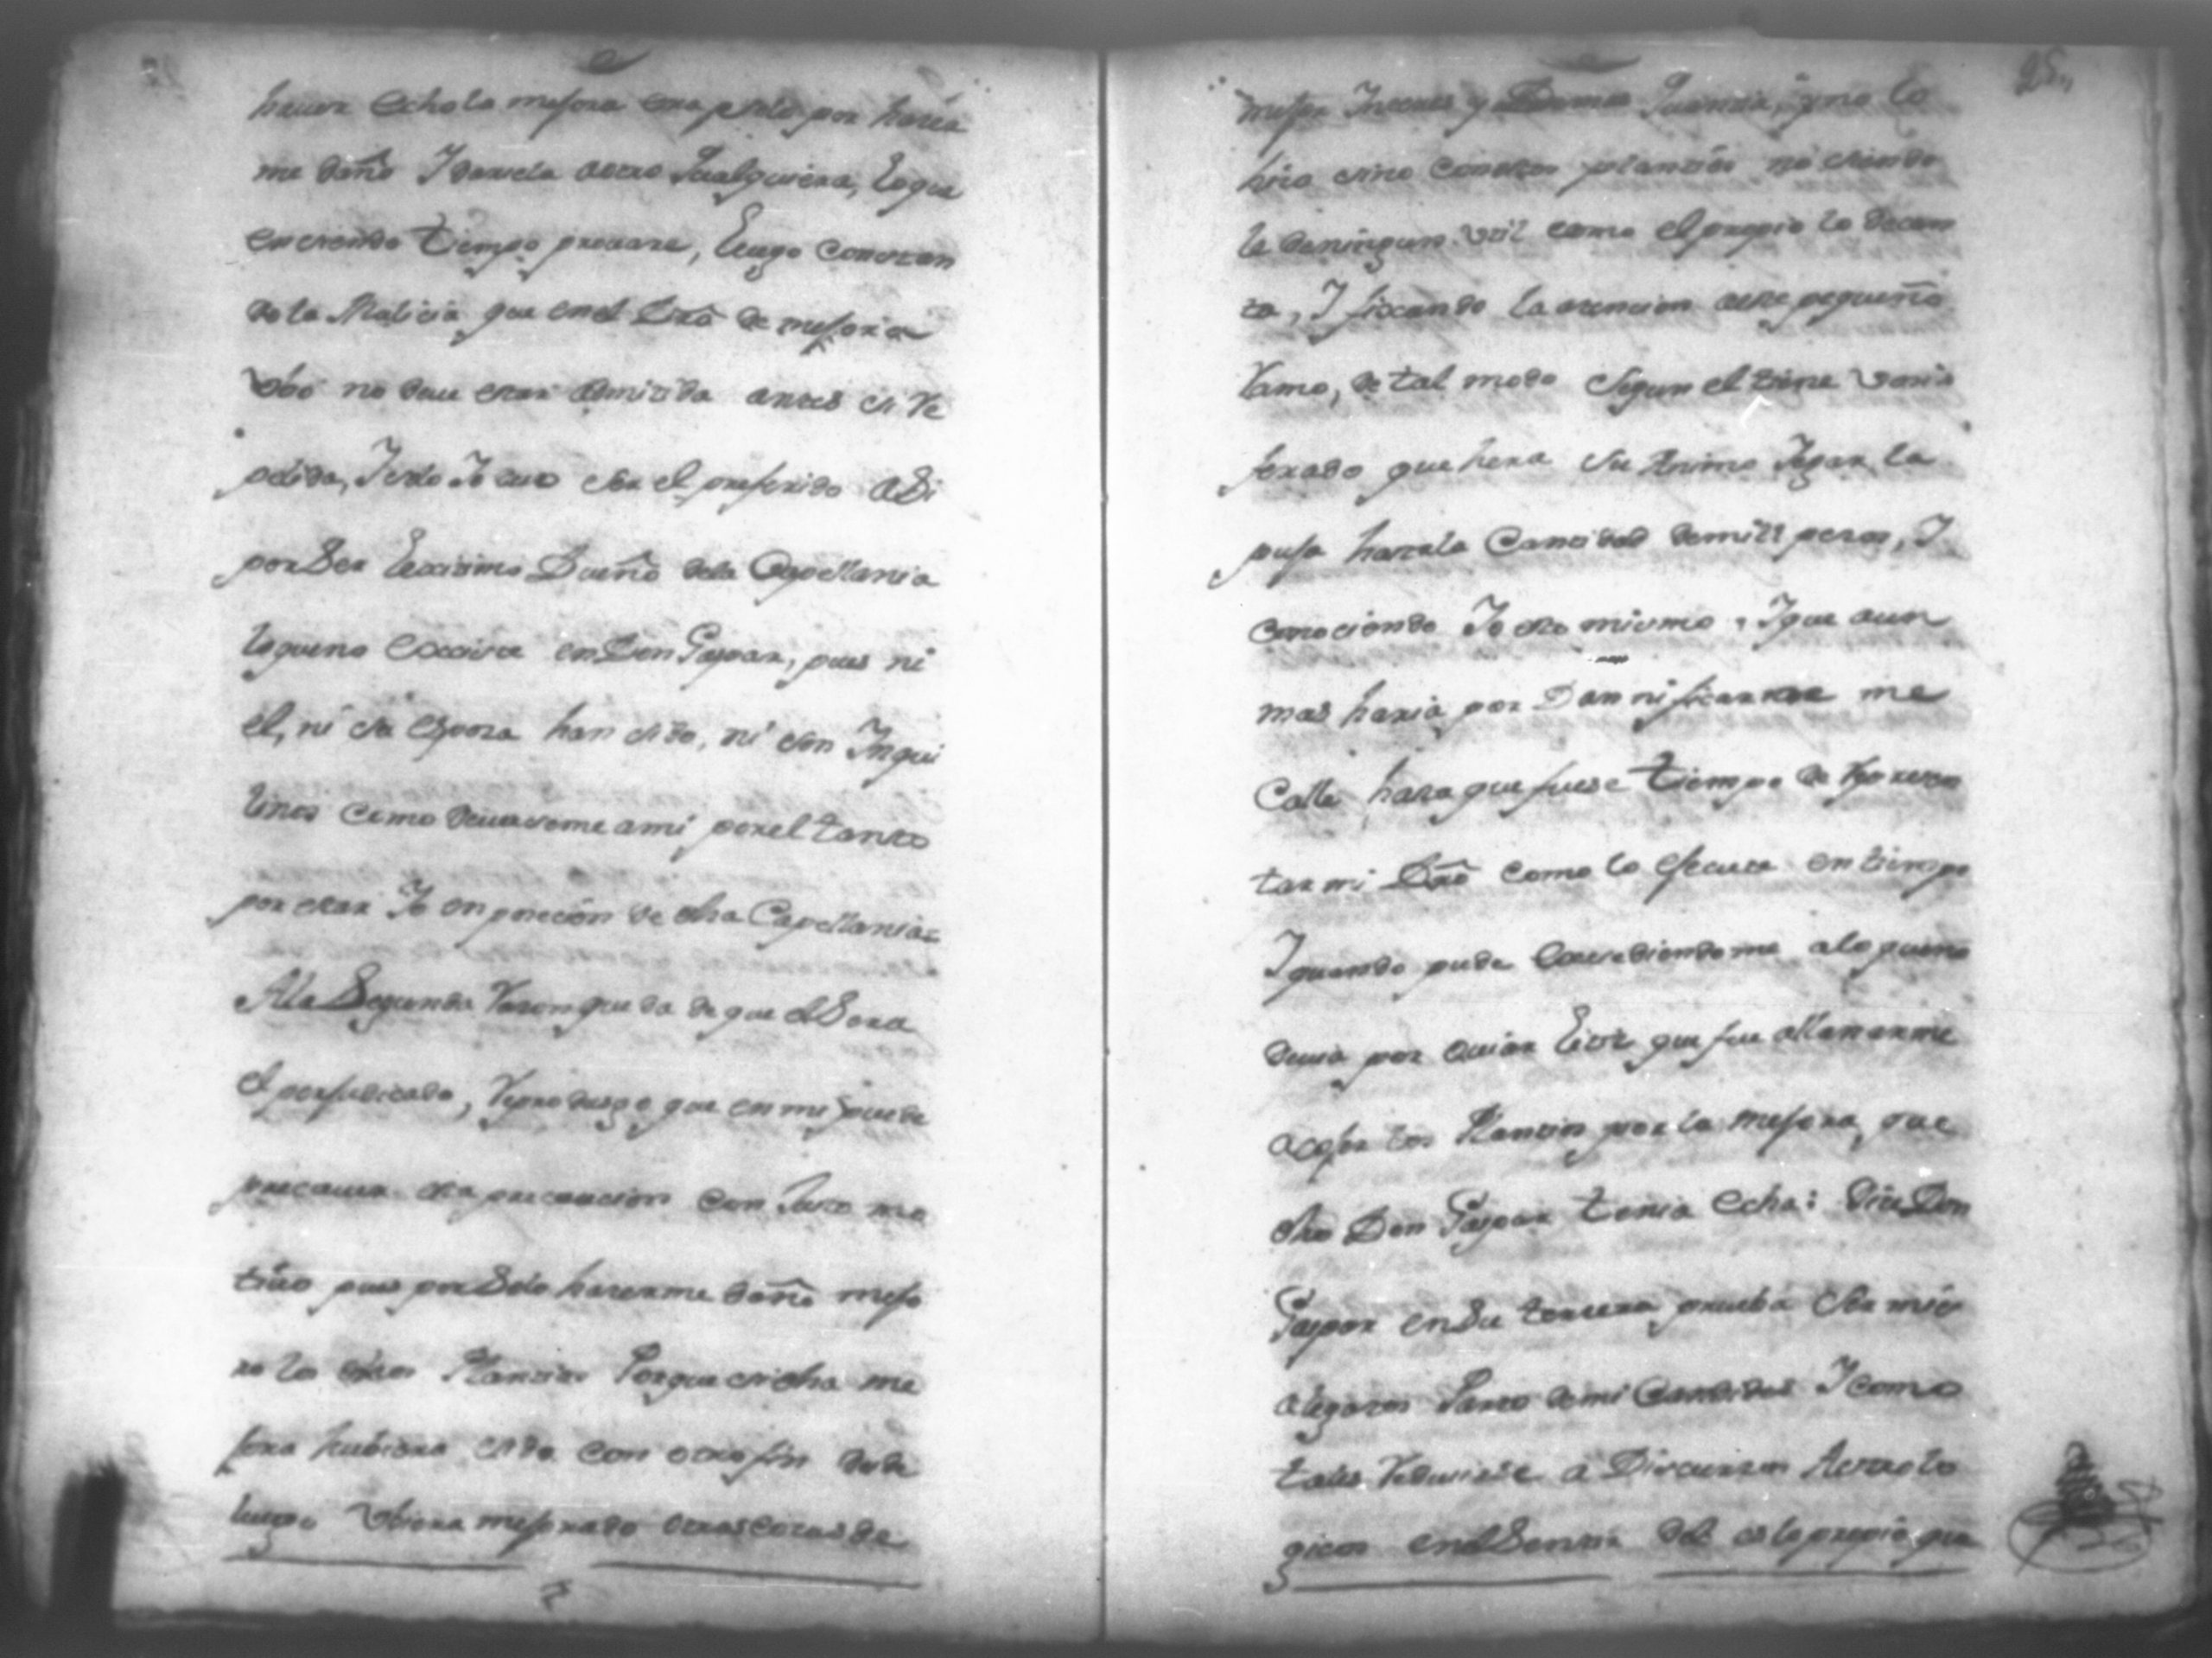 hauer echo la mejora era solo por hacer
me daño I darsela aotro Qualquiera, lo que
en siendo tiempo prouare, luego constan
do la Malicia que en el Dro de mejora
Vbo no deue estar admitida antes si Re
pelida, I solo Io deuo ser el preferido asi
por Ser lexitimo Dueño dela Capellania
lo que no existe en Don Gaspar, pues ni
el, ni su esposa han sido, ni son Inqui
linos como deuerseme ami por el tanto
por estar Io en posecion de dha Capellania=
Ala Segunda Razon que da de que el Sera
el perjudicado, Reprodusgo que en mi puede
precauer esa precaucion con Justo mo
tiuo pues por Solo hacerme daño mejo
ro los dhos Plantios Porque si dha me
jora hubiera sido con otro fin desde
luego Vbiera mejorado otras cosas de
25
mejor Interes y Ganancia, y no lo
hizo sino con estos plantios no siendo
le de ningun Vtil como el propio lo decan
ta, I fixando la atencion a este pequeño
Ramo, de tal modo segun el tiene Voci
ferado que hera su Animo Jugar la
puja hasta la Cantidad de mill pesos, I
conociendo Io esto mismo, I que aun
mas haria por Damnificarme me
Calle hasta que fuese tiempo de
tar mi Dro como lo efecute en tiempo
I quando pude excediendome a lo que no
deuia por euitar Litis que fue allanarme
a cojer los Plantios por la mejora, que
dho Don Gaspar tenia echa: Dice Don
Gaspar en Su tercera prueba ser mis
alegatos Parto de mi Candides I como
tales Reducirse a Discursos Astrolo
gicos en el Sentir del es lo propio que